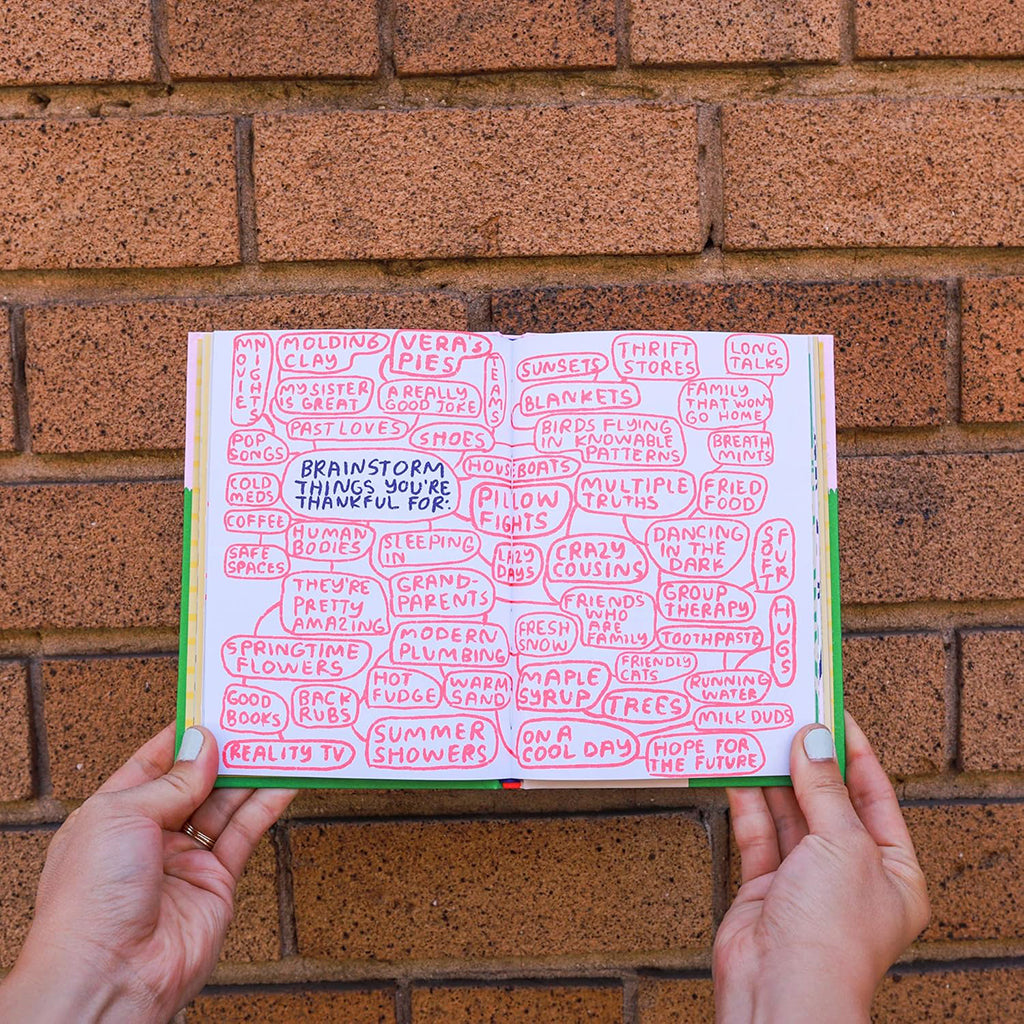 MOVIE
NIGHTS
MOLDING
CLAY
VERA'S
PIES
TEAMS
MY SISTER
IS GREAT
A REALLY
GOOD JOKE
PAST LOVES
SHOES
POP
SONGS
BRAINSTORM
THINGS YOU'RE
THANKFUL FOR:
HOUSEBOATS
COLD
MEDS
PILLOW
FIGHTS
COFFEE
HUMAN
BODIES
SLEEPING
IN
SAFE
SPACES
LAZY
DAYS
THEY'RE
PRETTY
AMAZING
GRAND-
PARENTS
MODERN
PLUMBING
SPRINGTIME
FLOWERS
HOT
FUDGE
WARM
SAND
GOOD
BOOKS
BACK
RUBS
SUMMER
SHOWERS
REALITY TV
SUNSETS
THRIFT
STORES
LONG
TALKS
BLANKETS
FAMILY
THAT WON'T
GO HOME
BIRDS FLYING
IN KNOWABLE
PATTERNS
BREATH
MINTS
MULTIPLE
TRUTHS
FRIED
FOOD
CRAZY
COUSINS
DANCING
IN THE
DARK
SOFT
FUR
FRIENDS
WHO
ARE
FAMILY
GROUP
THERAPY
FRESH
SNOW
TOOTHPASTE
HUGS
FRIENDLY
CATS
MAPLE
SYRUP
RUNNING
WATER
TREES
MILK DUDS
ON A
COOL DAY
HOPE FOR
THE FUTURE